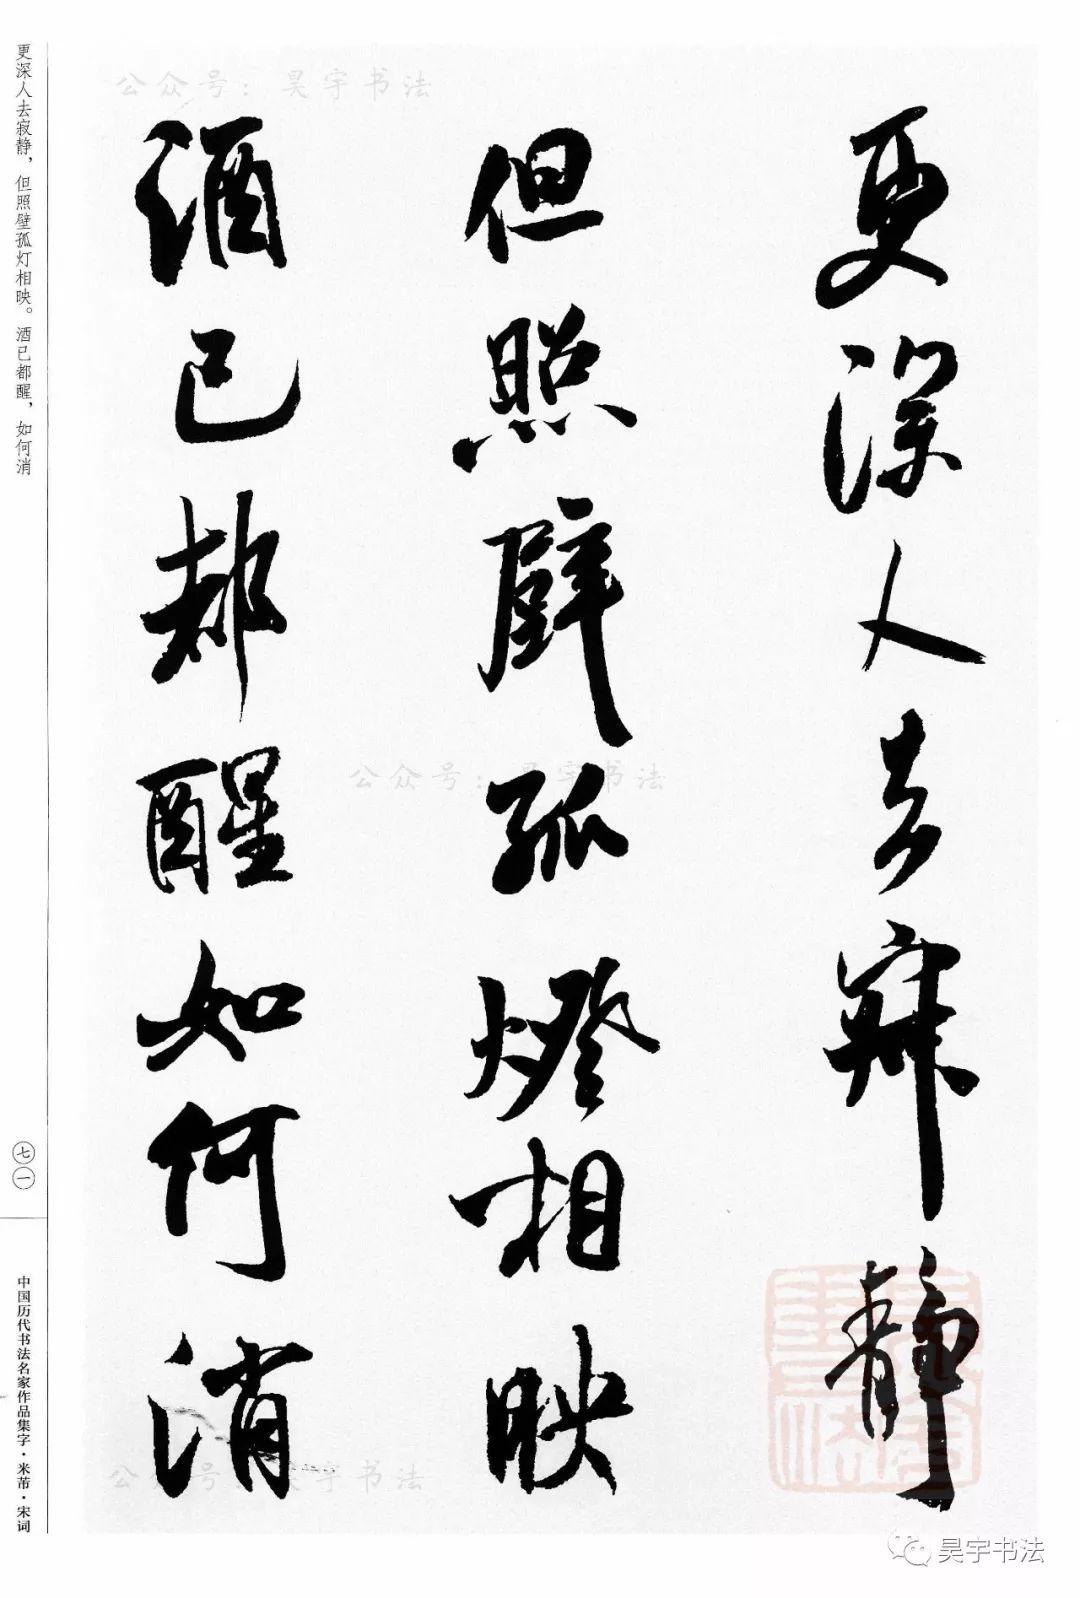 公众号：昊宇书法
更深人去寂静
但照壁孤燈相映
酒已都醒如何消
公众号：昊宇书法
公众号：昊宇书法
更深人去寂静，但照壁孤灯相映。酒已都醒，如何消
七一
中国历代书法名家作品集字·米芾·宋词
昊宇书法